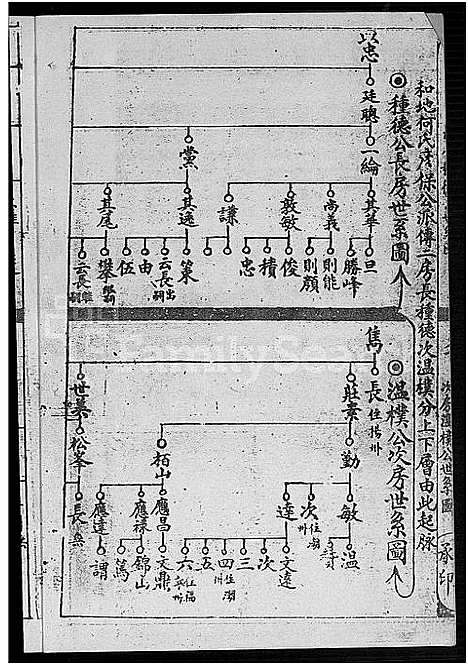 和地何氏茂保公派傳二房長種德次溫樸分上下層由此起脉
◎種德公長房世系圖
以忠
廷聰
一綸
黨
其華
尚義
敦敏
謙
其逸
其尾
旦
勝峰
則能
則顏
俊
積
忠
策
云長出嗣
由
伍
攀
云長
◎溫樸公次房世系圖
雋
長 住揚州
莊素
世慕
勤
柏山
松峯
敏
次
達
應昌
應祿
應達
長
溫
文遠
次
三
四
五
六
文鼎
錦山
篤
謂
FamilySearch